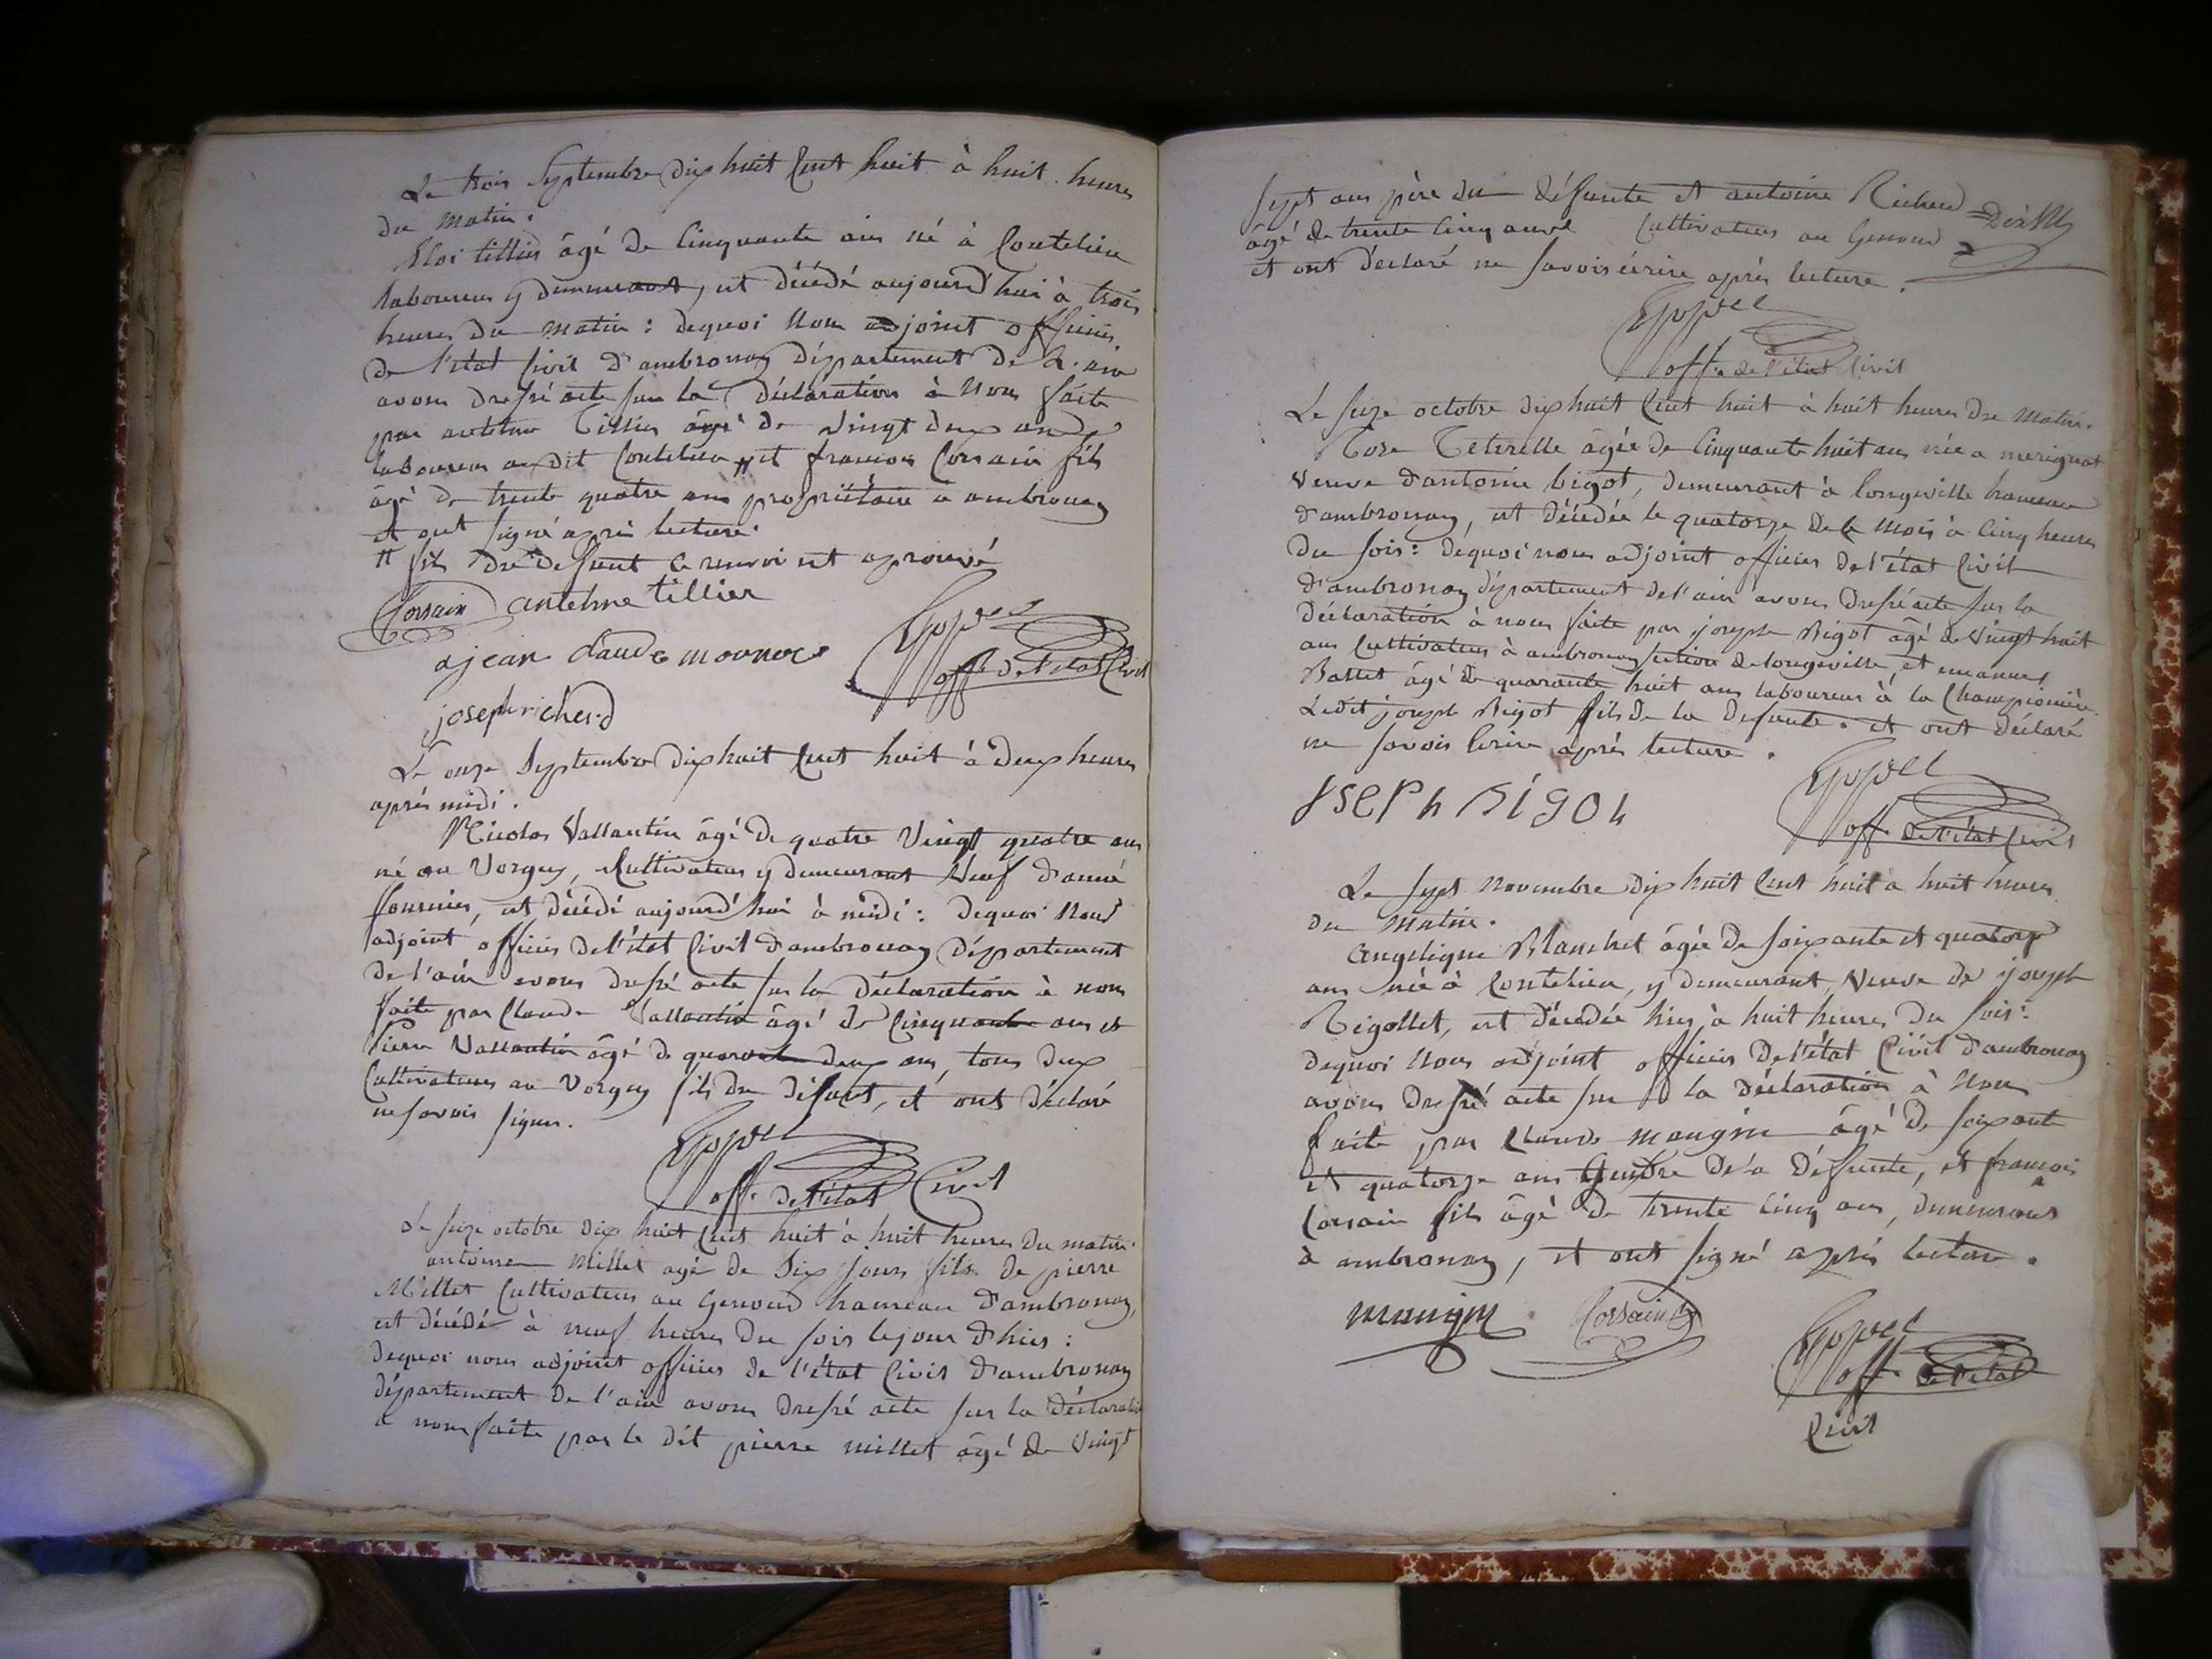 Le trois Septembre dix huit Cent huit à huit heures
du matin.
Eloi tillier âgé de Cinquante ans né à Coutelieu
laboureur y demeurant, est décédé aujourd'hui à trois
heures du matin : dequoi Nous adjoint officier
de l'état Civil d'ambronay département de l'ain
avons dressé acte sur la déclaration à Nous faite
par antelme Tillier âgé de Vingt deux ans
laboureur audit Coutelieu # et francois Corsain fils
âgé de trente quatre ans propriétaire à ambronay
et ont signé après lecture.
# fils du défunt ce renvoi est aprouvé
Corsain antelme tillier
ajean claude
off. de l'état Civil
joseph richerd
Le onze Septembre dix huit Cent huit à deux heures
après midi.
Nicolas Vallantin âgé de quatre Vingt quatre ans
né au Vorgey, Cultivateur y demeurant Veuf d'anne
fournier, est décédé aujourd'hui à midi : dequoi Nous
adjoint officier de l'état Civil d'ambronay département
de l'ain avons dressé acte sur la déclaration à nous
faite par Claude Vallantin âgé de Cinquante ans et
Pierre Vallantin âgé de quarante deux ans, tous deux
Cultivateurs au Vorgey fils du défunt, et ont déclaré
ne savoir signer.
off. de l'état Civil
Le seize octobre dix huit Cent huit à huit heures du matin.
antoine Millet agé de Six jours fils de pierre
Millet Cultivateur au Genoud hameau d'ambronay,
est décédé à neuf heures du soir le jour d'hier :
dequoi nous adjoint officier de l'état Civil d'ambronay
département de l'ain avons dressé acte sur la déclaration
à nous faite par le dit pierre millet âgé de Vingt
sept ans père du défunt et antoine Richerd
âgé de trente Cinq ans Cultivateur au Genoud
et ont déclaré ne savoir écrire après lecture.
off. de l'état Civil
Le seize octobre dix huit Cent huit à huit heures du matin.
Roze Teterelle âgée de Cinquante huit ans née a merignat
Veuve d'antoine bigot, demeurant à longeville hameau
d'ambronay, est décédée le quatorze de le mois à Cinq heures
du soir : dequoi nous adjoint officier de l'état Civil
d'ambronay département de l'ain avons dressé acte sur la
déclaration à nous faite par joseph Bigot âgé de Vingt huit
ans Cultivateur à ambronay section de longeville, et emanuel
Battet âgé de quarante huit ans laboureur à la Championière
Ledit joseph Bigot fils de la defunte. et ont déclaré
ne savoir Ecrire après lecture.
off. de l'état Civil
Le sept Novembre dix huit Cent huit à huit heures
du matin.
Angelique Blanchet âgée de soixante et quatorze
ans née à Coutelieu, y demeurant, Veuve de joseph
Rigollet, est décédée hier à huit heures du soir :
dequoi Nous adjoint officier de l'état Civil d'ambronay
avons dressé acte sur la déclaration à Nous
faite par Claude mangin âgé de soixante
et quatorze ans Gendre de la défunte, et francois
Corsain fils âgé de trente Cinq ans, demeurant
à ambronay, et ont signé après lecture.
mangin Corsain
off. de l'état
Civil